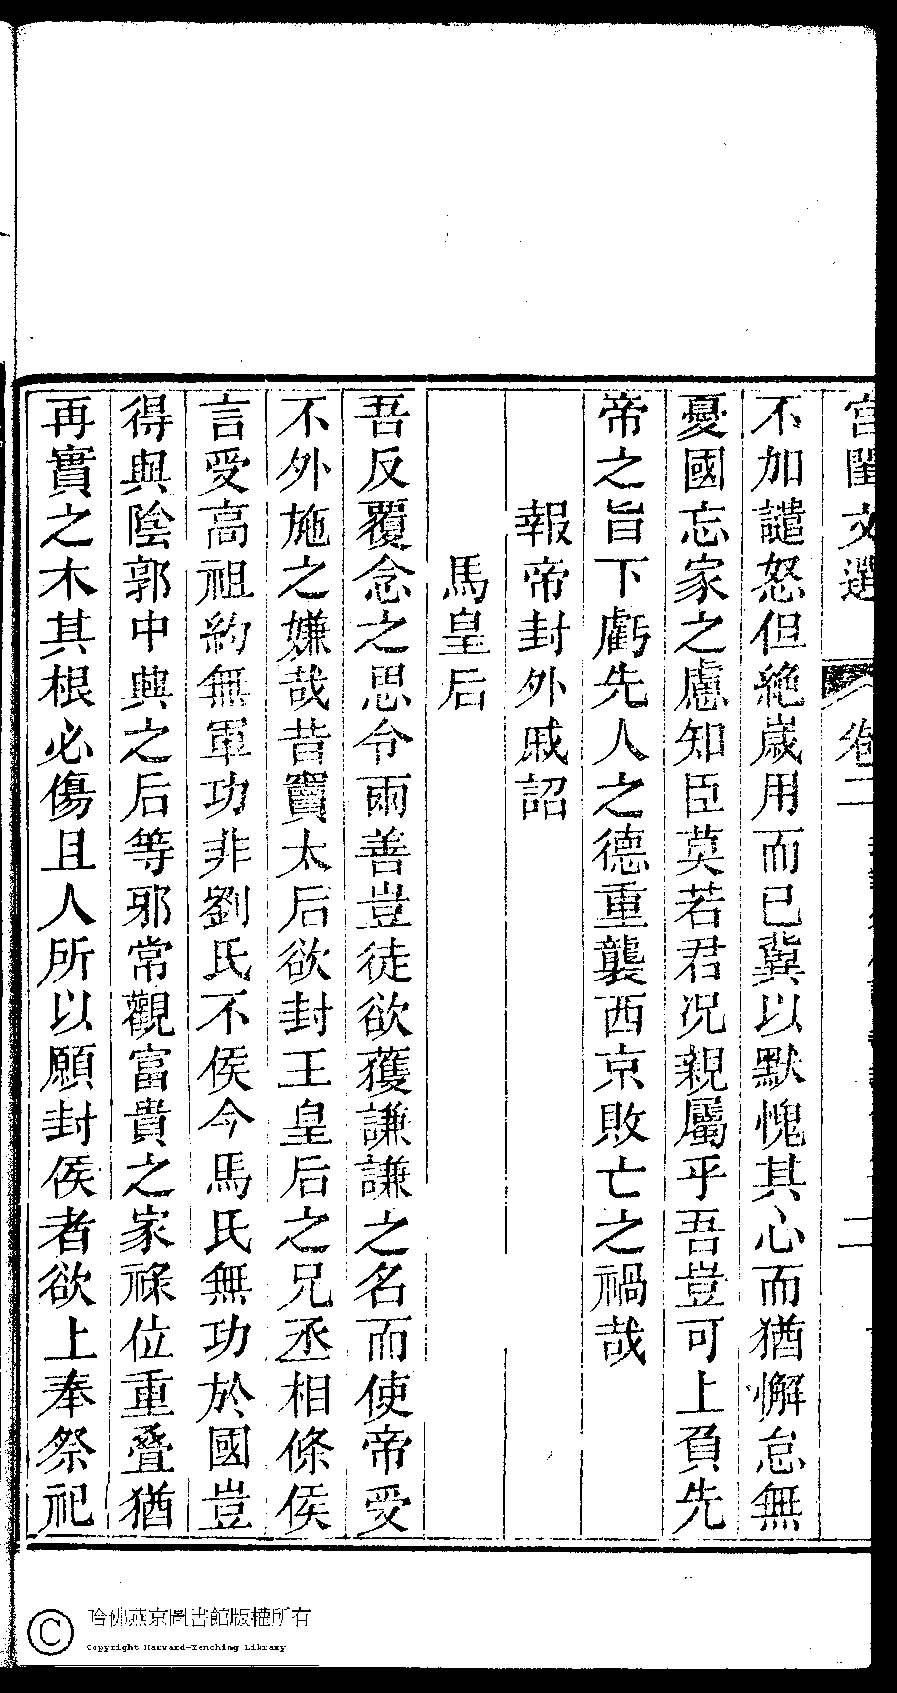 宮閨文選 卷二 二
不加譴怒但絶嵗用而已冀以默愧其心而猶懈怠無
憂國忘家之慮知臣莫若君况親屬乎吾豈可上負先
帝之旨下虧先人之德重襲西京敗亡之禍哉
報帝封外戚詔
馬皇后
吾反覆念之思令兩善豈徒欲獲謙謙之名而使帝受
不外施之嫌哉昔竇太后欲封王皇后之兄丞相條侯
言受高祖約無軍功非劉氏不侯今馬氏無功於國豈
得與陰郭中興之后等邪常觀富貴之家祿位重疊猶
再實之木其根必傷且人所以願封侯者欲上奉祭祀
哈佛燕京圖書館版權所有
Copyright Harvard-Yenching Library